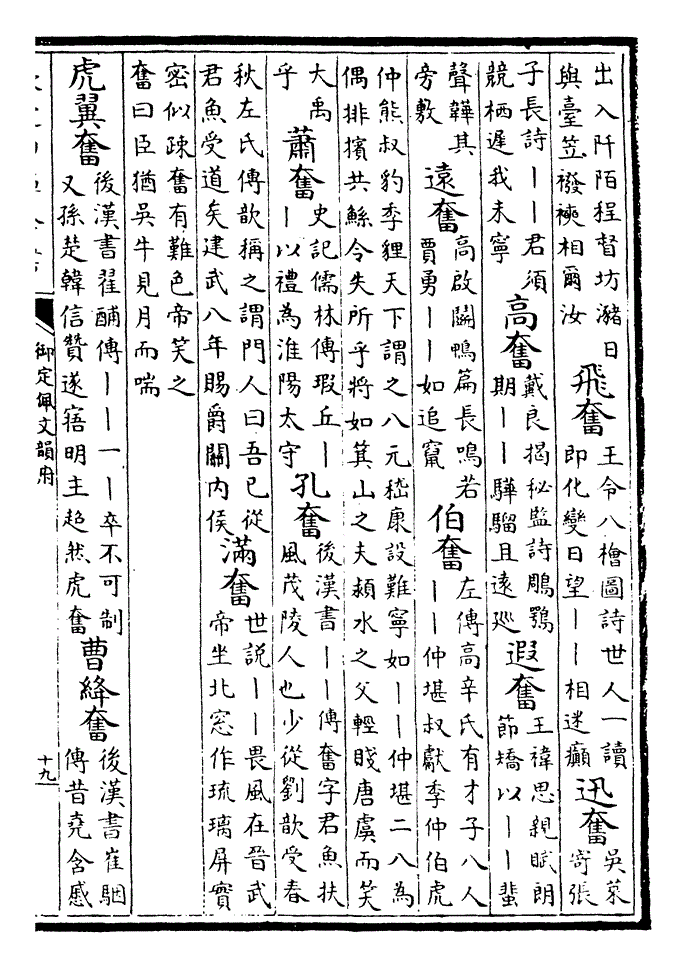 出入阡陌程督坊瀦日
與臺笠襏襫相爾汝
飛奮
王令八檜圖詩世人一讀
即化變日望丨丨相迷癲
迅奮
吳萊
寄張
子長詩丨丨君須
競栖遲我未寧
高奮
戴良揭秘監詩鵰鶚
期丨丨驊騮且遠廵
遐奮
王褘思親賦朗
節矯以丨丨蜚
聲韡其
旁敷
遠奮
高啟鬭鴨篇長鳴若
賈勇丨丨如追竄
伯奮
左傳高辛氏有才子八人
丨丨仲堪叔獻季仲伯虎
仲熊叔豹季貍天下謂之八元嵇康設難寧如丨丨仲堪二八為
偶排擯共鯀令失所乎將如箕山之夫潁水之父輕賤唐虞而笑
大禹
乎
蕭奮
史記儒林傳瑕丘丨
丨以禮為淮陽太守
孔奮
後漢書丨丨傳奮字君魚扶
風茂陵人也少從劉歆受春
秋左氏傳歆稱之謂門人曰吾已從
君魚受道矣建武八年賜爵關内侯
滿奮
世説丨丨畏風在晉武
帝坐北窓作琉璃屏實
密似疎奮有難色帝笑之
奮曰臣猶吳牛見月而喘
虎翼奮
後漢書翟酺傳丨丨一丨卒不可制
又孫楚韓信贊遂寤明主超然虎奮
曹絳奮
後漢書崔駰
傳昔堯含慼
御定佩文韻府
十九